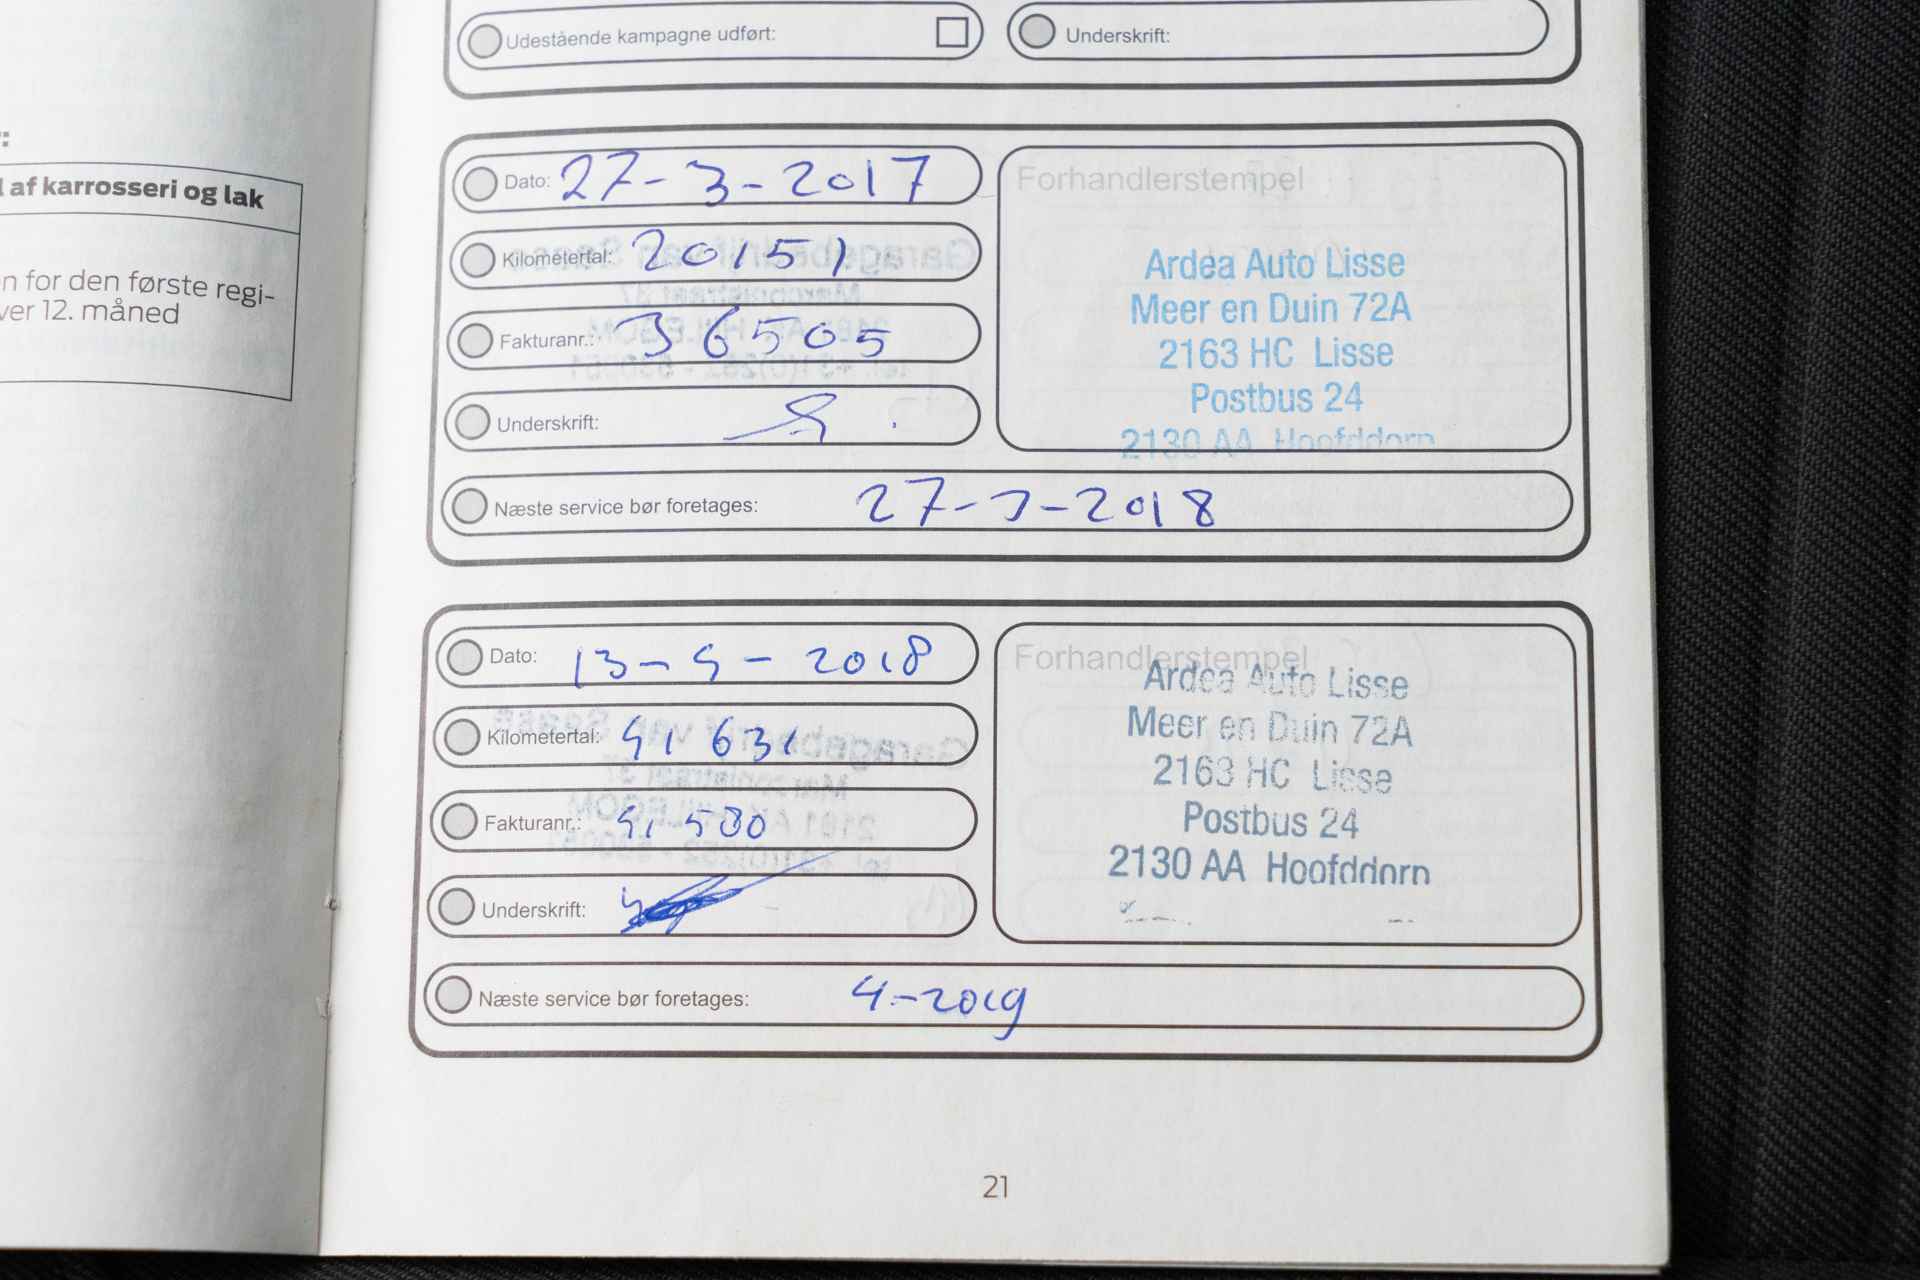 Udestående kampagne udført:
Underskrift:
:
af karrosseri og lak
n for den første regi-
ver 12. måned
Dato: 27-3-2017
Kilometertal: 20151
Fakturanr.: 36505
Underskrift:
Forhandlerstempel
Ardea Auto Lisse
Meer en Duin 72A
2163 HC Lisse
Postbus 24
2130 AA Hoofddorp
Næste service bør foretages: 27-3-2018
Dato: 13-4-2018
Kilometertal: 41631
Fakturanr.: 41580
Underskrift:
Forhandlerstempel
Ardea Auto Lisse
Meer en Duin 72A
2163 HC Lisse
Postbus 24
2130 AA Hoofddorp
Næste service bør foretages: 4-2019
21